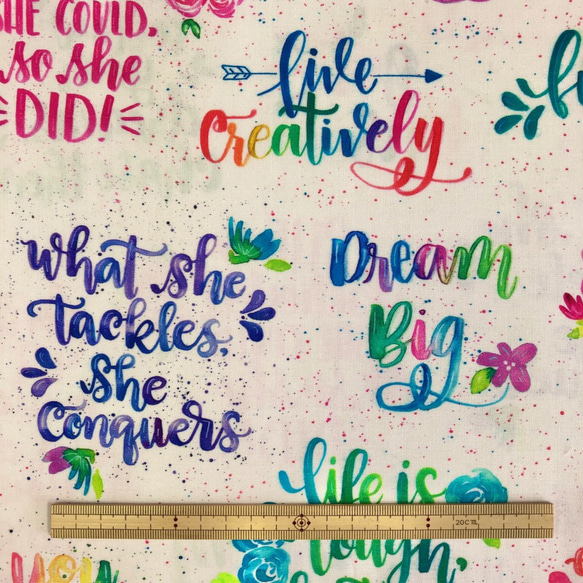 SHE COULD,
so she
DID!
live
Creatively
What she
tackles,
She
Conquers
Dream
Big
life is
tough,
you
20C 1L